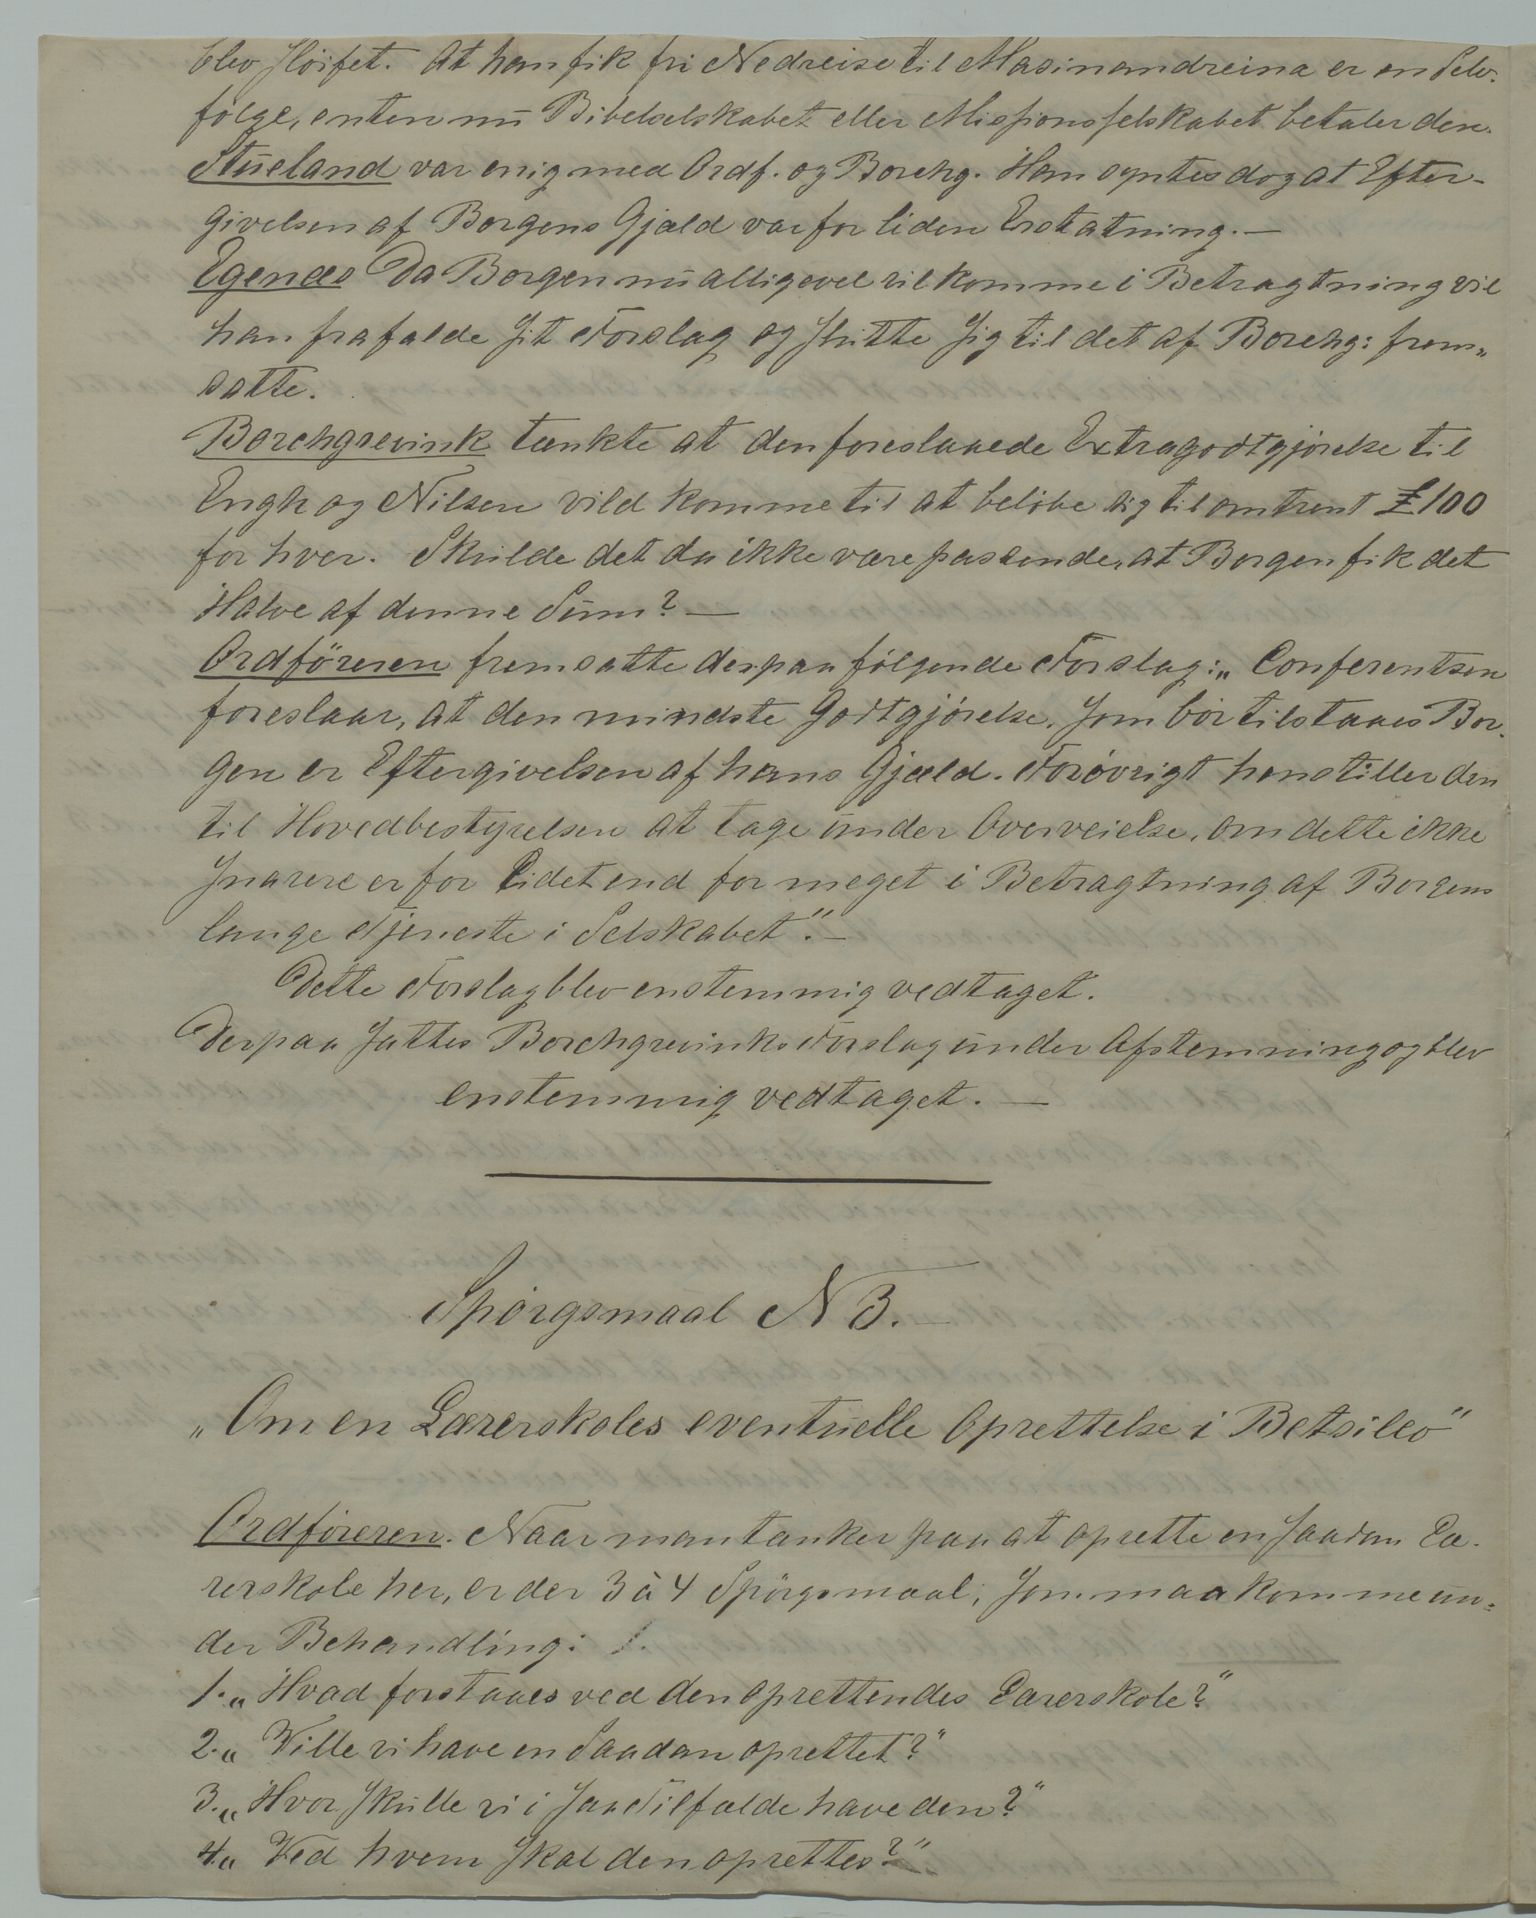 blev sløifet. At han fik fri Nedreise til Masinandreina er en Selv-
følge, enten nu Bibelselskabet eller Missionsselskabet betaler den.
Stueland var enig med Ordf. og Borchg. Han syntes dog at Efter-
givelsen af Borgens Gjæld var for liden Erstatning. —
Egenæs Da Borgen nu alligevel vil komme i Betragtning vil
han frafalde sit Forslag og slutte sig til det af Borchg: frem-
satte.
Borchgrevink tænkte at den foreslaaede Extragodtgjørelse til
Engh og Nilsen vild komme til at beløbe sig til omtrent £100
for hver. Skulde det da ikke være passende, at Borgen fik det
Halve af denne Sum? —
Ordföreren fremsatte derpaa følgende Forslag: „Conferentsen
foreslaar, at den mindste Godtgjørelse, som bør tilstaaes Bor-
gen er Eftergivelsen af hans Gjæld. Forøvrigt henstiller den
til Hovedbestyrelsen at tage under Overveielse, om dette ikke
snarere er for lidet end for meget i Betragtning af Borgens
lange Tjeneste i Selskabet." —
Dette Forslag blev enstemmig vedtaget.
Derpaa sattes Borchgrevinks Forslag under Afstemning og blev
enstemmig vedtaget. —
Spørgsmaal N 3. —
„Om en Lærerskoles eventuelle Oprettelse i Betsileo"
Ordføreren. Naar man tænker paa at oprette en saadan Læ-
rerskole her, er der 3 à 4 Spörgsmaal, som maa komme un-
der Behandling: 1.
1. „Hvad forstaaes ved den oprettendes Lærerskole?"
2. „Ville vi have en Saadan oprettet?"
3. „Hvor skulle vi i saa Tilfælde have den?"
4. „Ved hvem skal den oprettes?" —